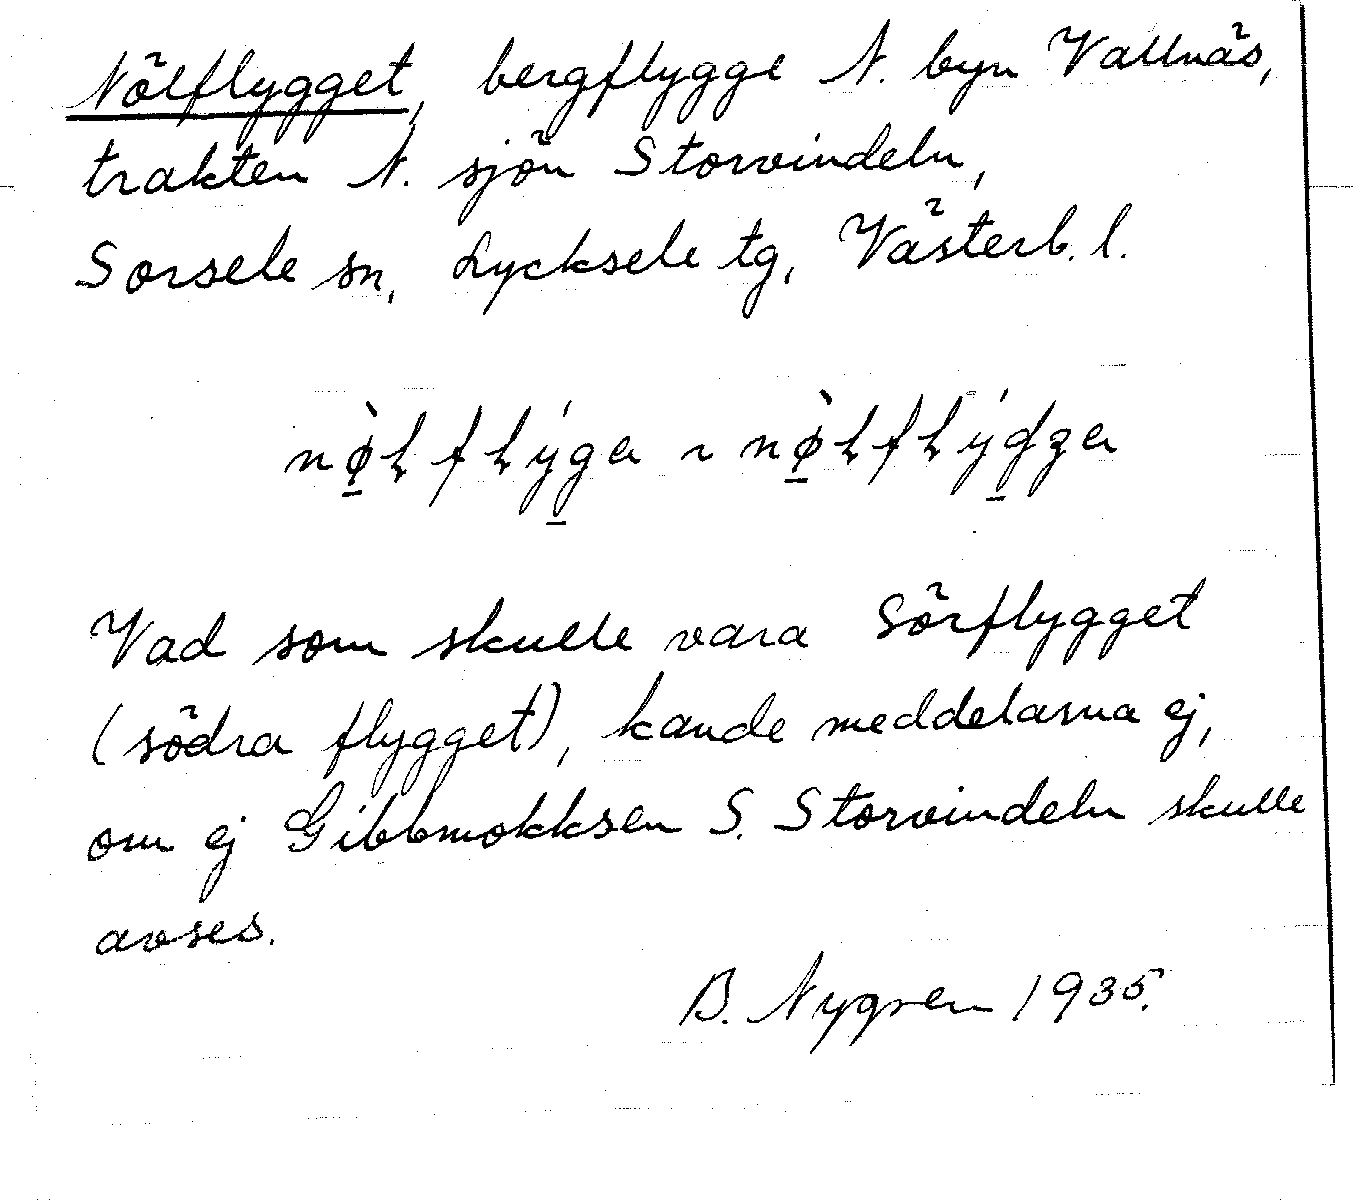 Nölflygget, bergflygge N. byn Vallnäs,
trakten N. sjön Storvindeln,
Sorsele sn, Lycksele tg, Västerb. l.
Vad som skulle vara Sörflygget
(södra flygget), kände meddelarna ej,
om ej Gibbmokksen S. Storvindeln skulle
avses.
B. Nygren 1935.